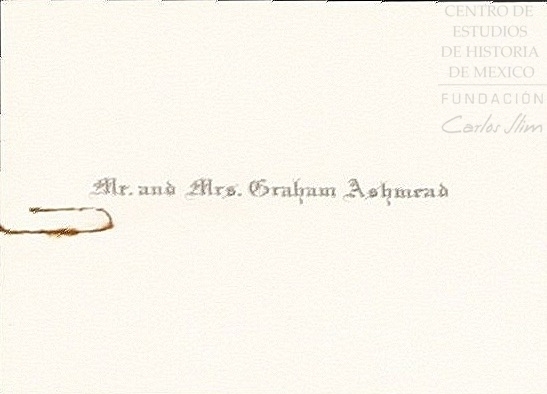 CENTRO DE
ESTUDIOS
DE HISTORIA
DE MEXICO
FUNDACIÓN
Carlos Slim
Mr. and Mrs. Graham Ashmead